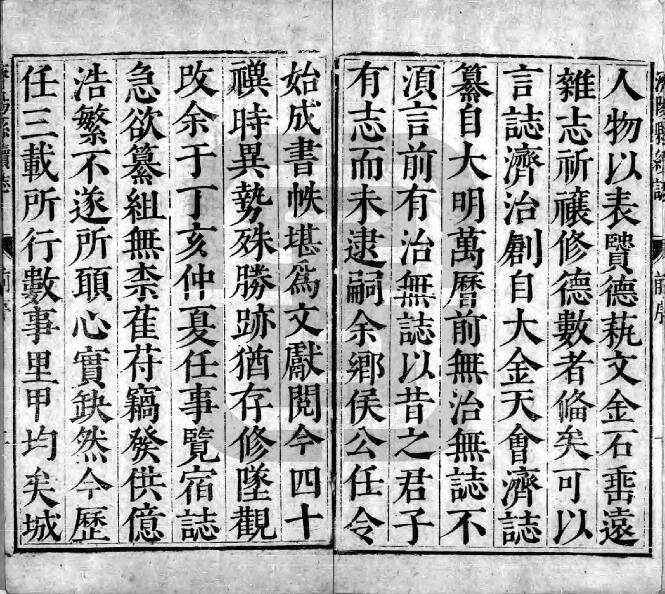 人物以表贒德蓺文金石垂遠
雜志祈禳修德數者俻矣可以
言誌濟治創自大金天會濟誌
纂自大明萬曆前無治無誌不
湏言前有治無誌以昔之君子
有志而未逮嗣余鄉侯公任令
始成書帙堪爲文獻閲今四十
禩時異勢殊勝跡猶存修墜觀
攺余于丁亥仲夏任事覽宿誌
急欲纂組無柰萑苻竊發供億
浩繁不遂所頋心實缺然今歷
任三載所行數事里甲均矣城